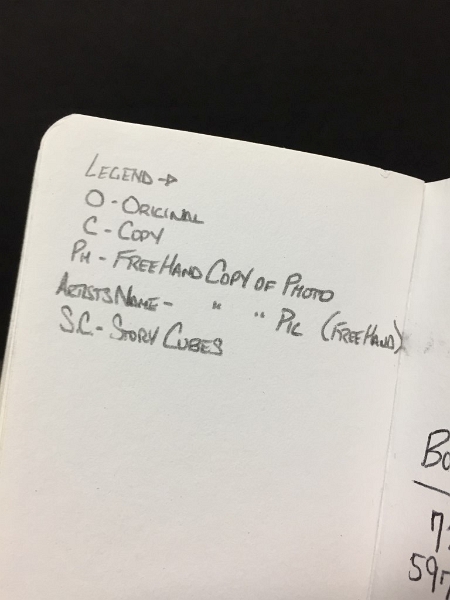 LEGEND →
O - ORIGINAL
C - COPY
PH - FREEHAND COPY OF PHOTO
ARTISTS NAME - " " PIC (FREEHAND)
S.C. - STORY CUBES
Bo
597